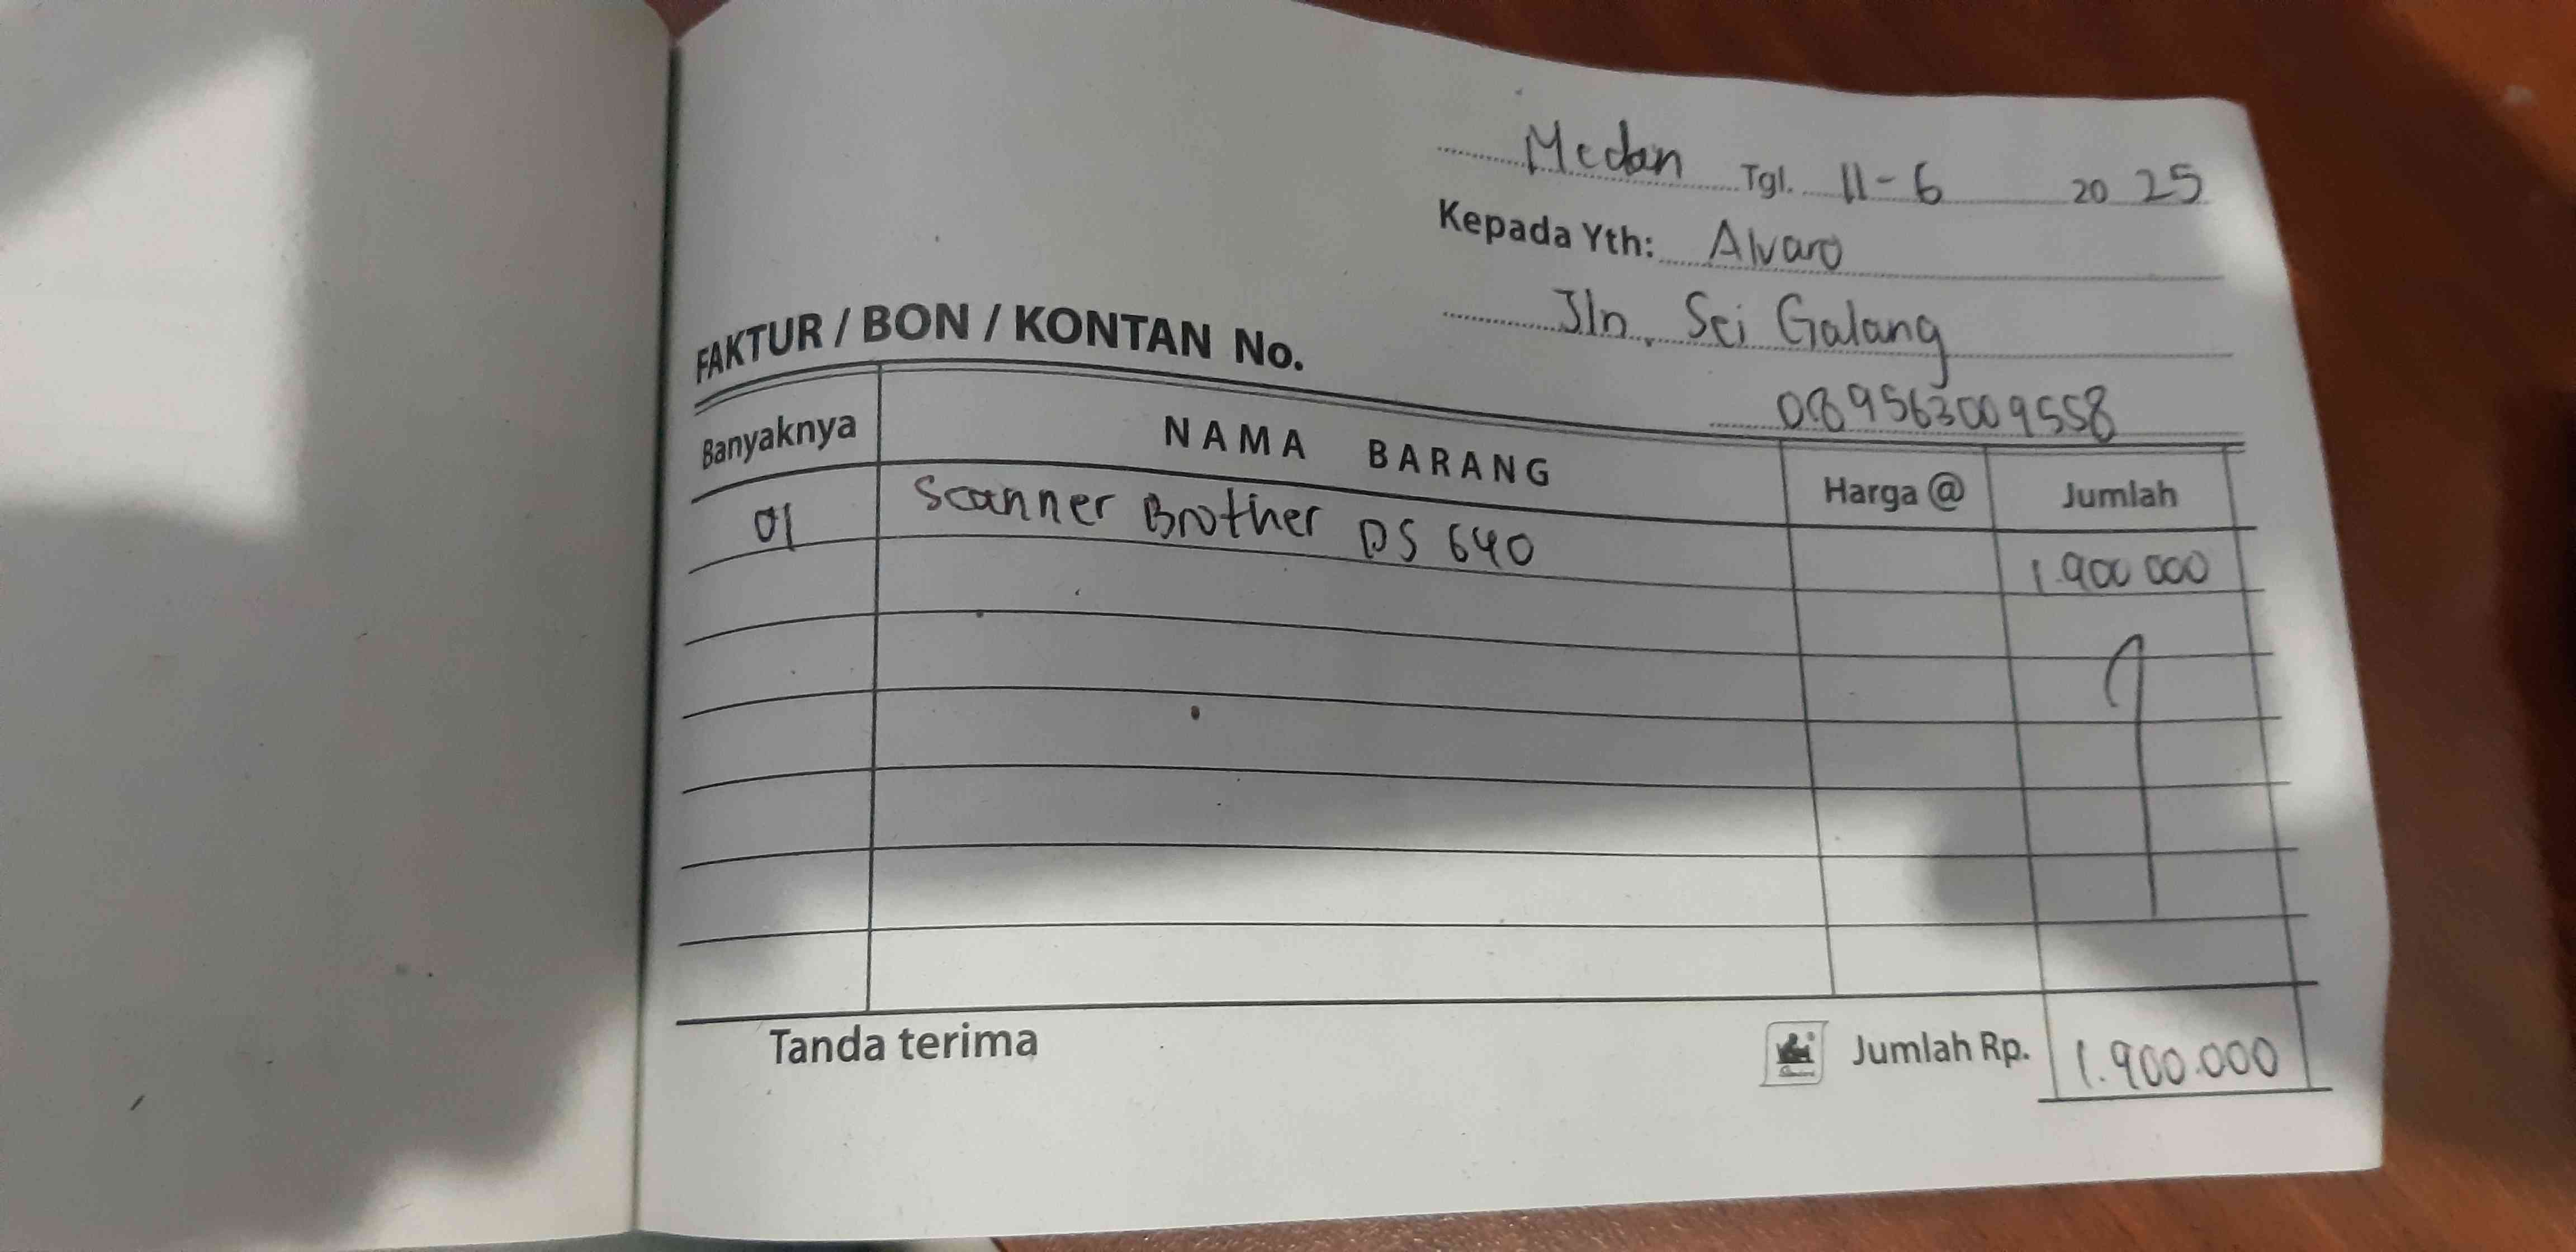 Medan Tgl. 11-6 2025
Kepada Yth: Alvaro
Jln. Sei Galang
089563009558
FAKTUR / BON / KONTAN No.
Banyaknya NAMA BARANG Harga @ Jumlah
01 Scanner Brother DS 640 1.900 000
Tanda terima Jumlah Rp. 1.900.000